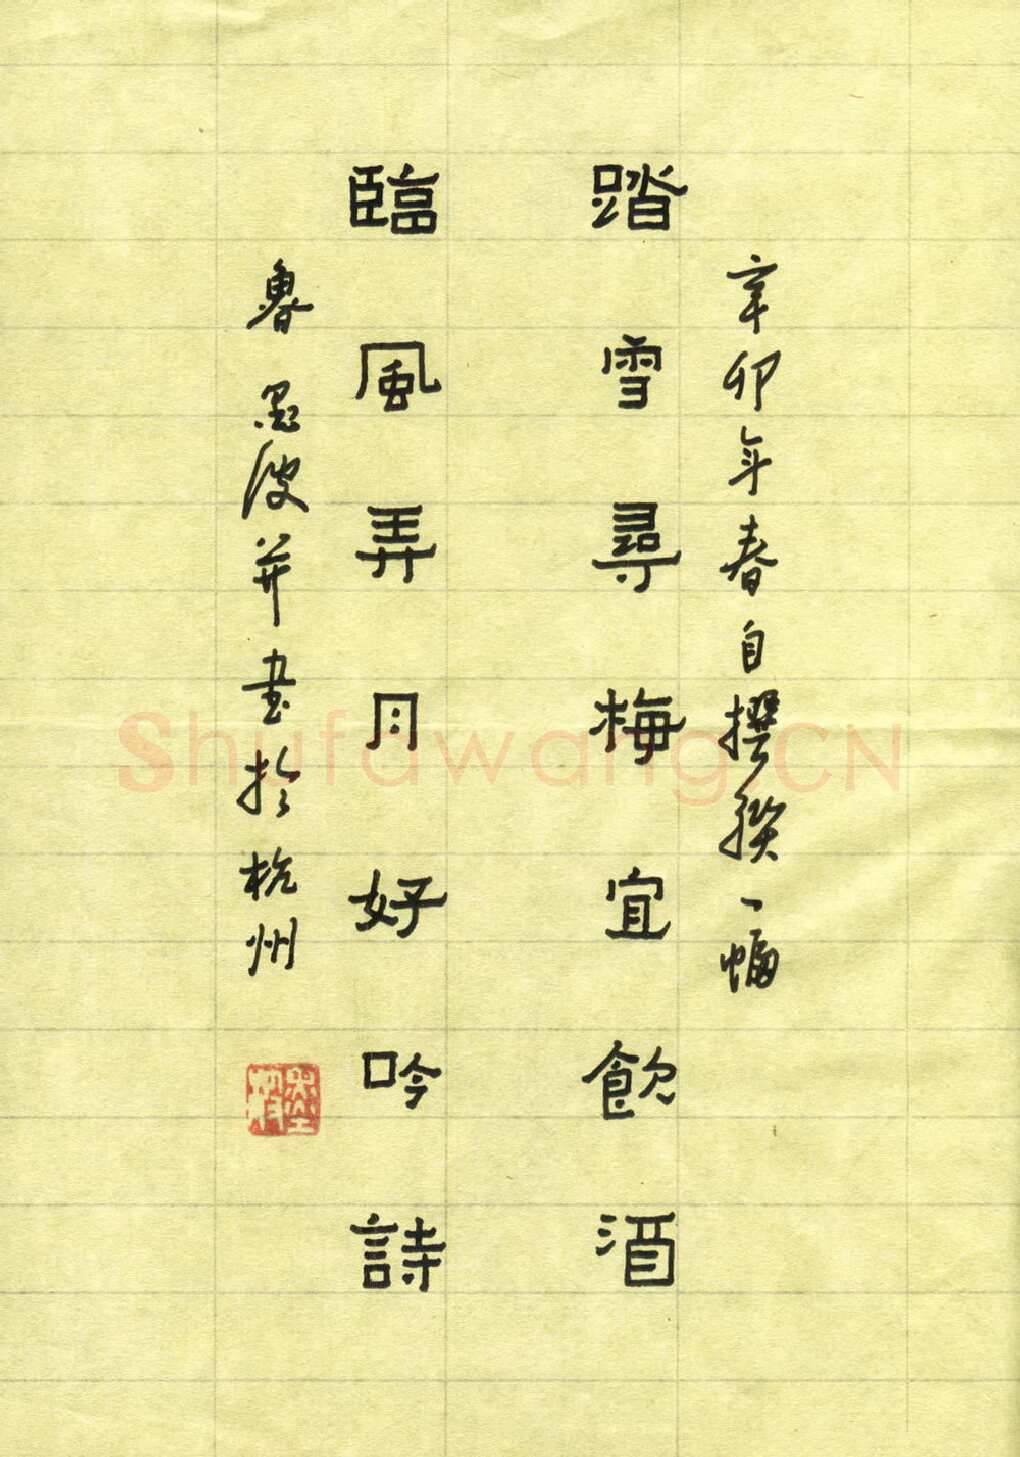 辛卯年春自撰联一幅
踏雪尋梅宜飲酒
臨風弄月好吟詩
魯墨波并书於杭州
Shufawang.CN